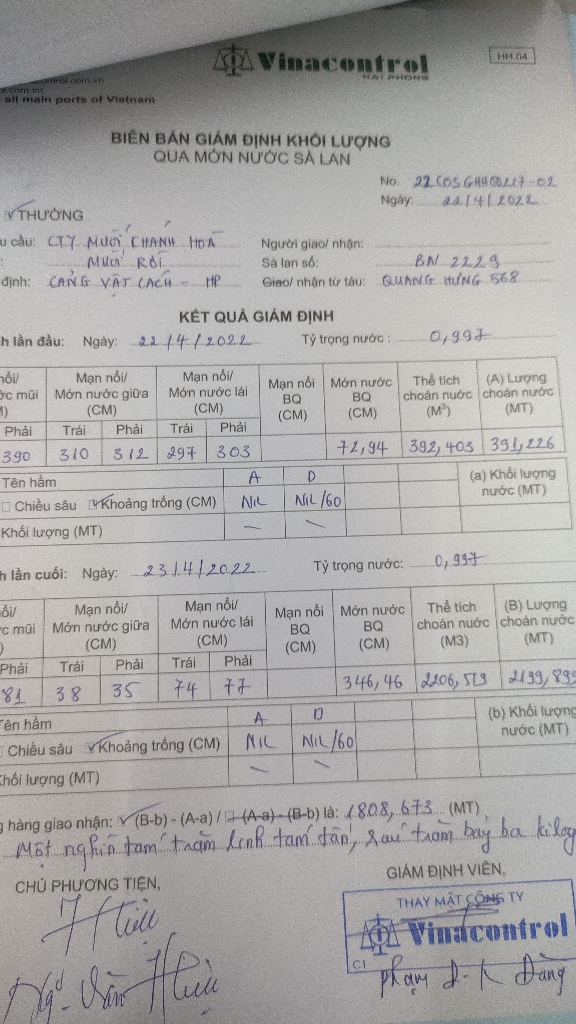 Vinacontrol
HAI PHONG
HH.04
control.com.vn
ol.com.vn
all main ports of Vietnam
BIÊN BẢN GIÁM ĐỊNH KHỐI LƯỢNG
QUA MỚN NƯỚC SÀ LAN
No. 22C05GHH00217-02
Ngày: 22/4/2022
THƯỜNG
u cầu: CTY MƯỜI CHÁNH HOÀ Người giao/ nhận:
: MUỐI RỜI Sà lan số: BN 2229
định: CẢNG VẬT CÁCH - HP Giao/ nhận từ tàu: QUANG HƯNG 568
KẾT QUẢ GIÁM ĐỊNH
h lần đầu: Ngày: 22/4/2022 Tỷ trọng nước: 0,997
nổi/ ớc mũi Mạn nổi/ Mớn nước giữa (CM) Mạn nổi/ Mớn nước lái (CM) Mạn nổi BQ (CM) Mớn nước BQ (CM) Thể tích choán nước (M³) (A) Lượng choán nước (MT)
Phải Trái Phải Trái Phải
390 310 312 297 303 72,94 392,403 391,226
Tên hầm A D (a) Khối lượng nước (MT)
Chiều sâu Khoảng trống (CM) NIL NIL/60
Khối lượng (MT) — —
h lần cuối: Ngày: 23/4/2022 Tỷ trọng nước: 0,997
ổi/ c mũi Mạn nổi/ Mớn nước giữa (CM) Mạn nổi/ Mớn nước lái (CM) Mạn nổi BQ (CM) Mớn nước BQ (CM) Thể tích choán nước (M3) (B) Lượng choán nước (MT)
Phải Trái Phải Trái Phải
81 38 35 74 77 346,46 2206,519 2199,899
Tên hầm A D (b) Khối lượng nước (MT)
Chiều sâu Khoảng trống (CM) NIL NIL/60
Khối lượng (MT) — —
g hàng giao nhận: (B-b) - (A-a) / (A-a) - (B-b) là: 1808,673 (MT)
Một nghìn tám trăm linh tám tấn, sáu trăm bảy ba kilog
CHỦ PHƯƠNG TIỆN, GIÁM ĐỊNH VIÊN,
THAY MẶT CÔNG TY
Vinacontrol
C1
Văn
Phạm Đăng